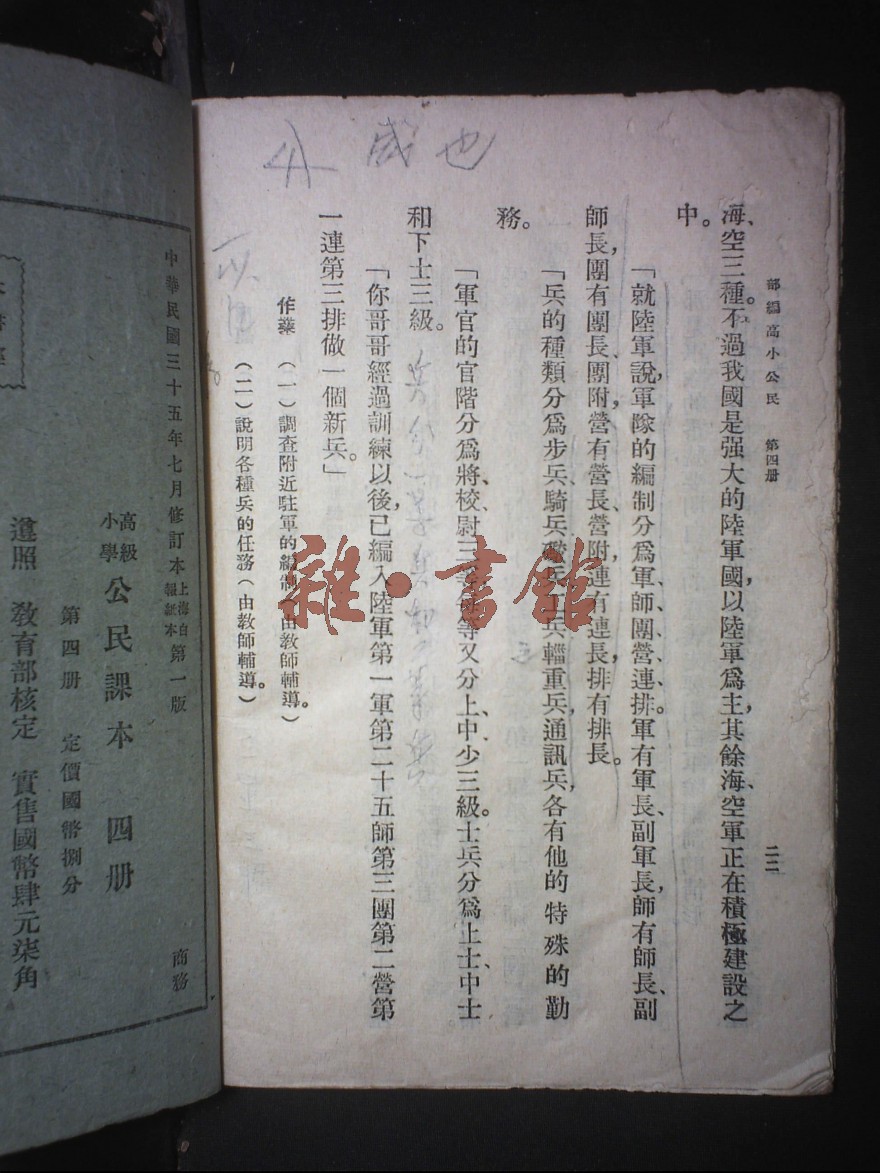 部編高小公民　第四册
二二
海、空三種。不過我國是强大的陸軍國，以陸軍爲主，其餘海、空軍正在積極建設之
中。
「就陸軍說，軍隊的編制分爲軍、師、團、營、連、排。軍有軍長、副軍長，師有師長、副
師長，團有團長、團附，營有營長、營附，連有連長，排有排長。
「兵的種類分爲步兵、騎兵、礮兵、工兵、輜重兵，通訊兵，各有他的特殊的勤
務。
「軍官的官階分爲將、校、尉三等，每等又分上、中、少三級。士兵分爲上士、中士
和下士三級。
「你哥哥經過訓練以後，已編入陸軍第一軍第二十五師第三團第二營第
一連第三排做一個新兵。」
作業　（一）調查附近駐軍的編制（由教師輔導。）
（二）說明各種兵的任務（由教師輔導。）
成也
雜·書館
中華民國三十五年七月修訂本上海白報紙本第一版
高級小學 公民課本 四册
第四册　定價國幣捌分
商務
遵照　教育部核定　實售國幣肆元柒角